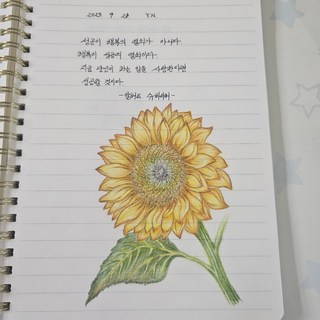 2023 9 28 YN
성공이 행복의 열쇠가 아니다.
행복이 성공의 열쇠이다.
지금 당신이 하는 일을 사랑한다면
성공할 것이다.
- 알버트 슈바이처 -